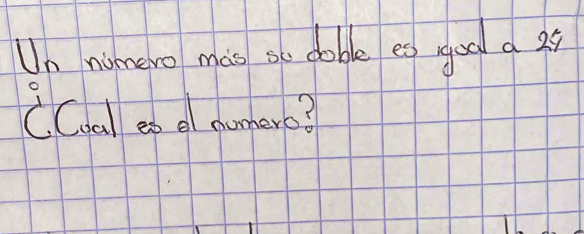 Un número más su doble es igual a 24
¿Cual es el numero?